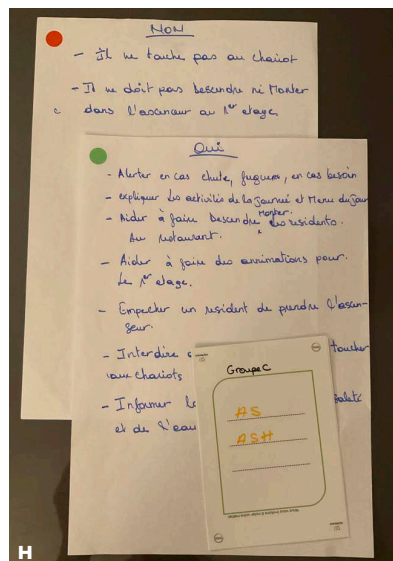 NON
- Il ne touche pas au chariot
- Il ne doit pas descendre ni Monter
dans l'ascenseur au 1er etage
Oui
- Alerter en cas chute, fugueurs, en cas besoin
- expliquer les activités de la Journée et Menu du jour
Monter.
- Aider à faire descendre les residents.
Au restaurant.
- Aider à faire des annimations pour.
le 1er etage.
- Empecher un resident de prendre l'ascen-
seur.
- Interdire toucher
aux chariots
- Informer
et de l'eau
Groupe C
AS
ASH
H